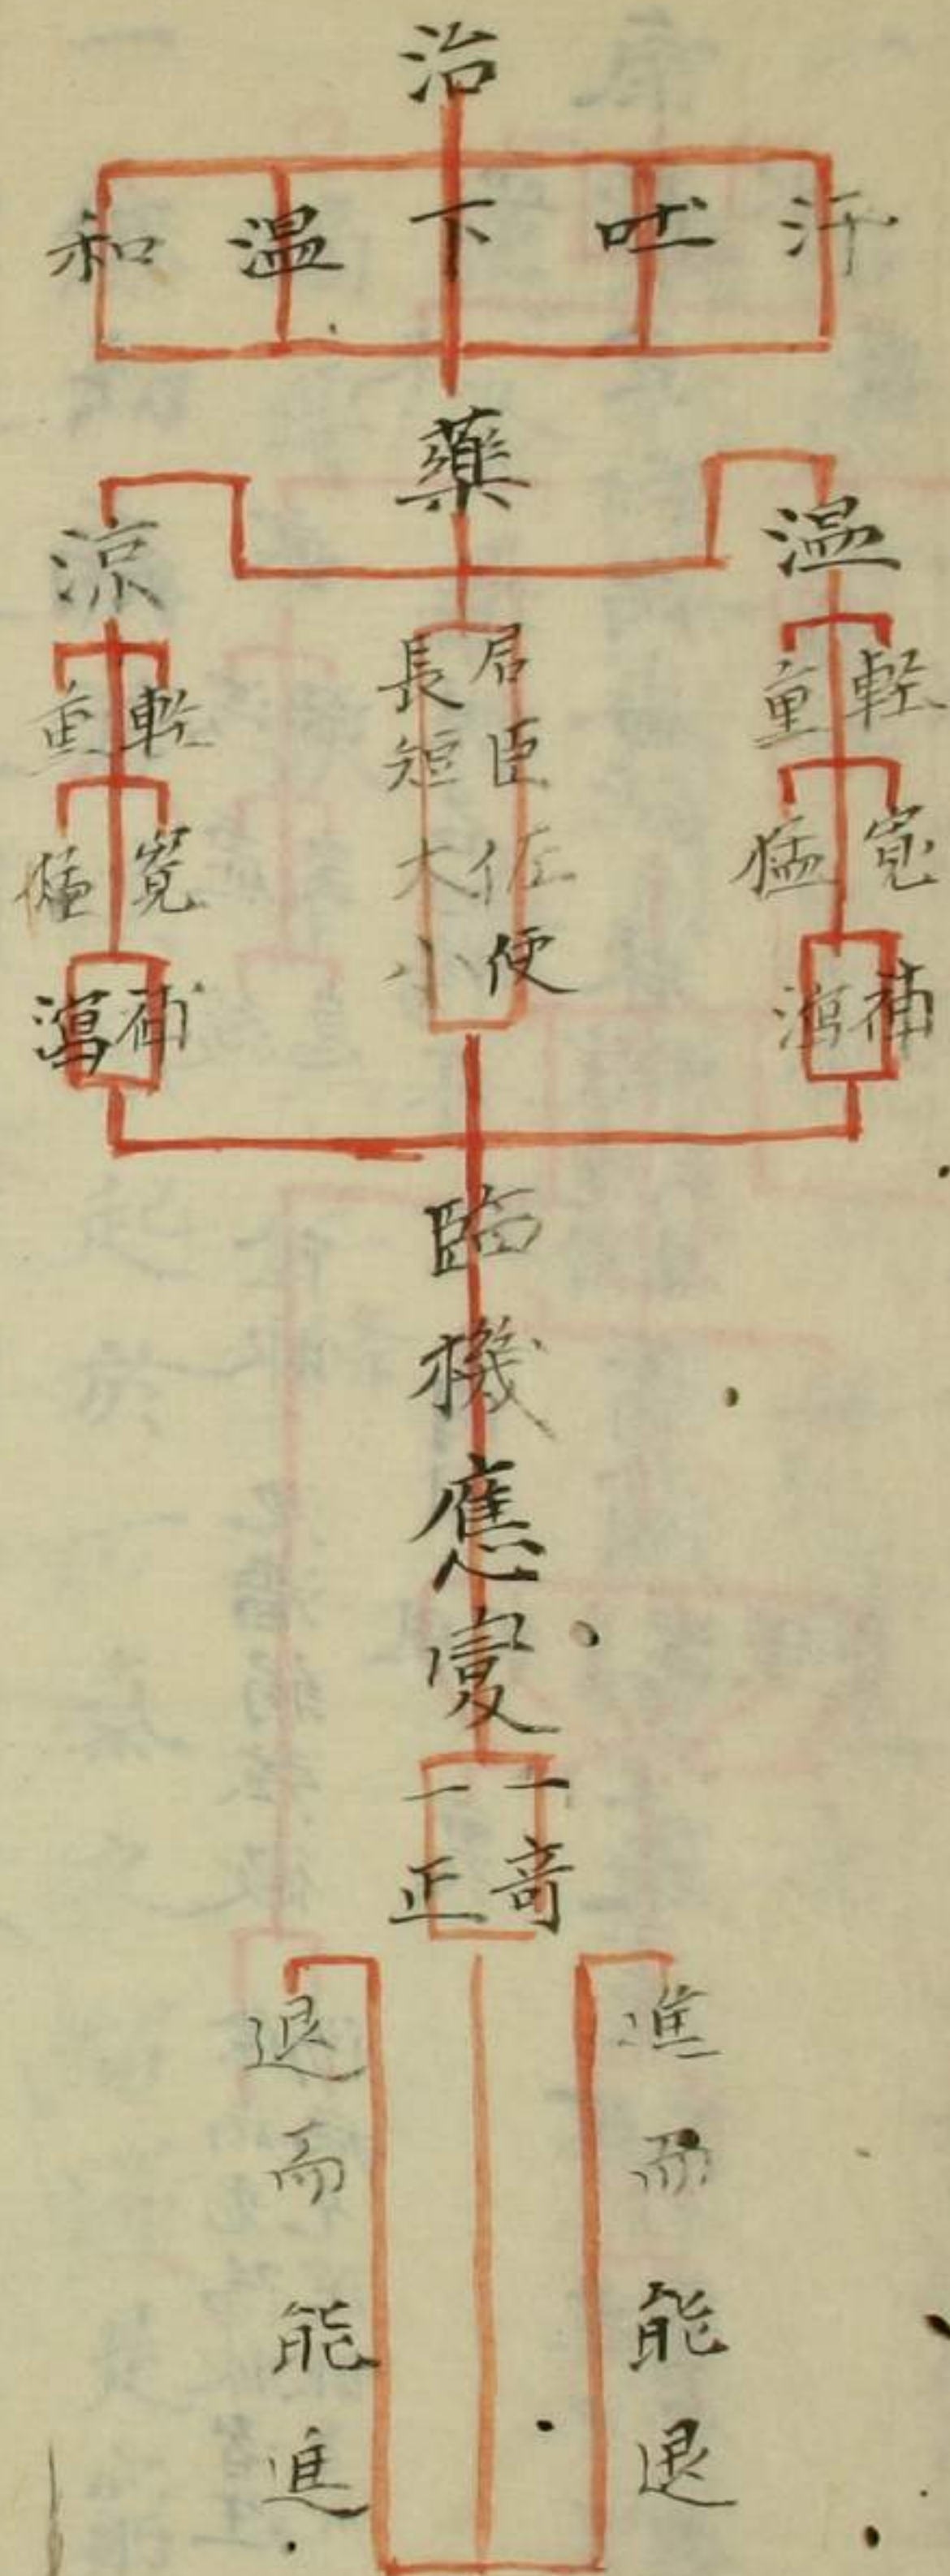 治
汗 吐 下 温 和
藥
温
輕 重
寛 猛
補 瀉
君臣佐使
長短大小
涼
軽 重
寛 猛
補 瀉
臨機應變
一奇
一正
進而能退
退而能進